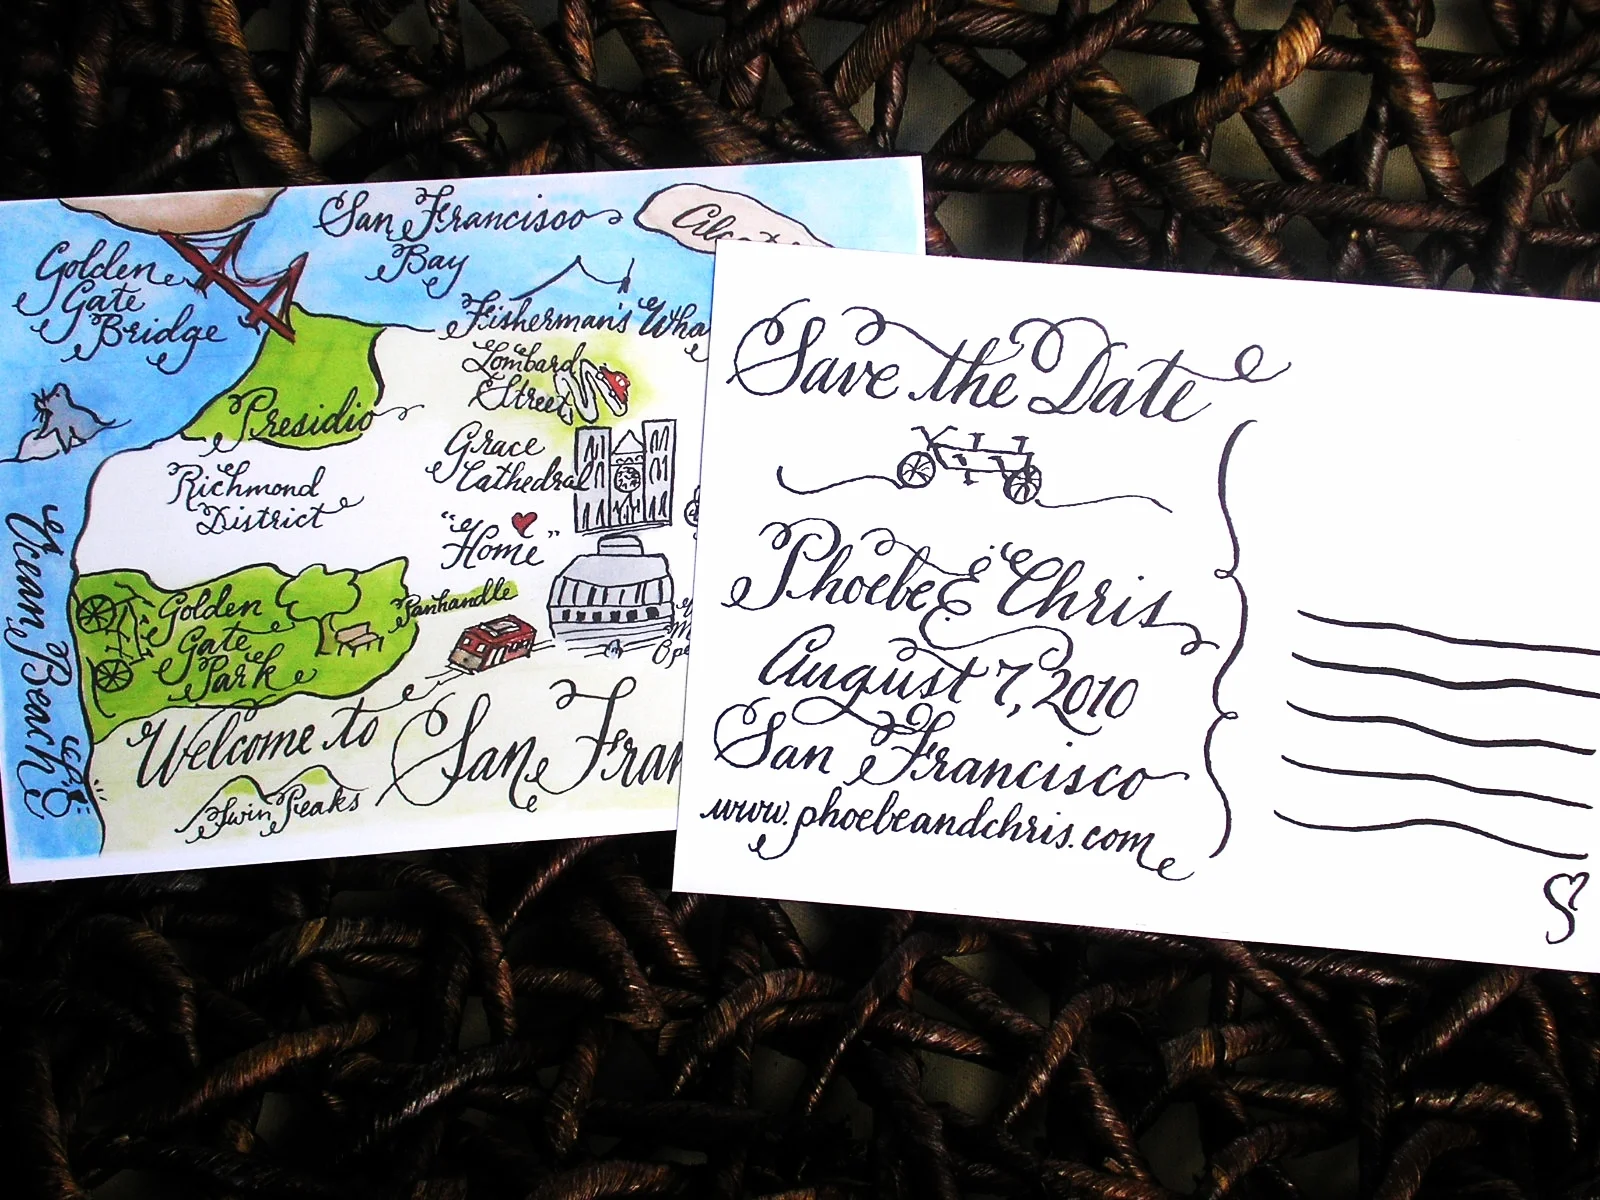 San Francisco
Bay
Golden
Gate
Bridge
Fisherman's
Lombard
Street
Presidio
Grace
Cathedral
Richmond
District
"Home"
Ocean Beach
Panhandle
Golden
Gate
Park
Welcome to San
Twin Peaks
Save the Date
Phoebe & Chris
August 7, 2010
San Francisco
www.phoebeandchris.com